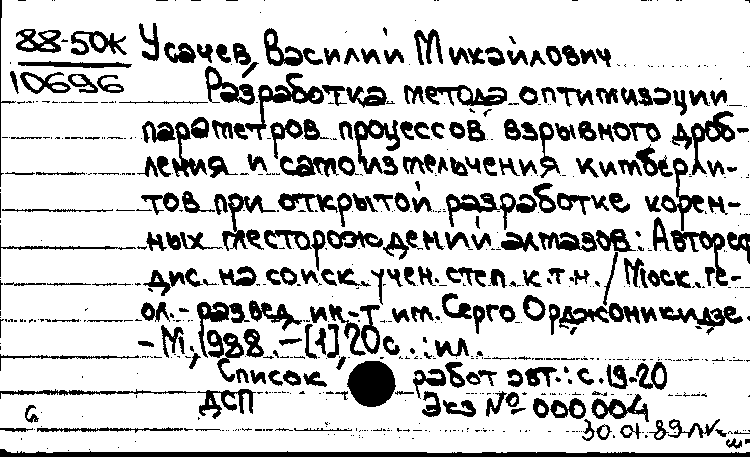 88-50К Усачев, Василий Михайлович
10696
Разработка метода оптимизации
параметров процессов взрывного дроб-
ления и самоизмельчения кимберли-
тов при открытой разработке корен-
ных месторождений алмазов: Автореф.
дис. на соиск. учен. степ. к.т.н. / Моск. ге-
ол.-развед. ин-т им. Серго Орджоникидзе.
- М., 1988. - [1], 20 с.: ил.
Список работ авт.: с. 19-20
ДСП Экз № 000004
30.01.89